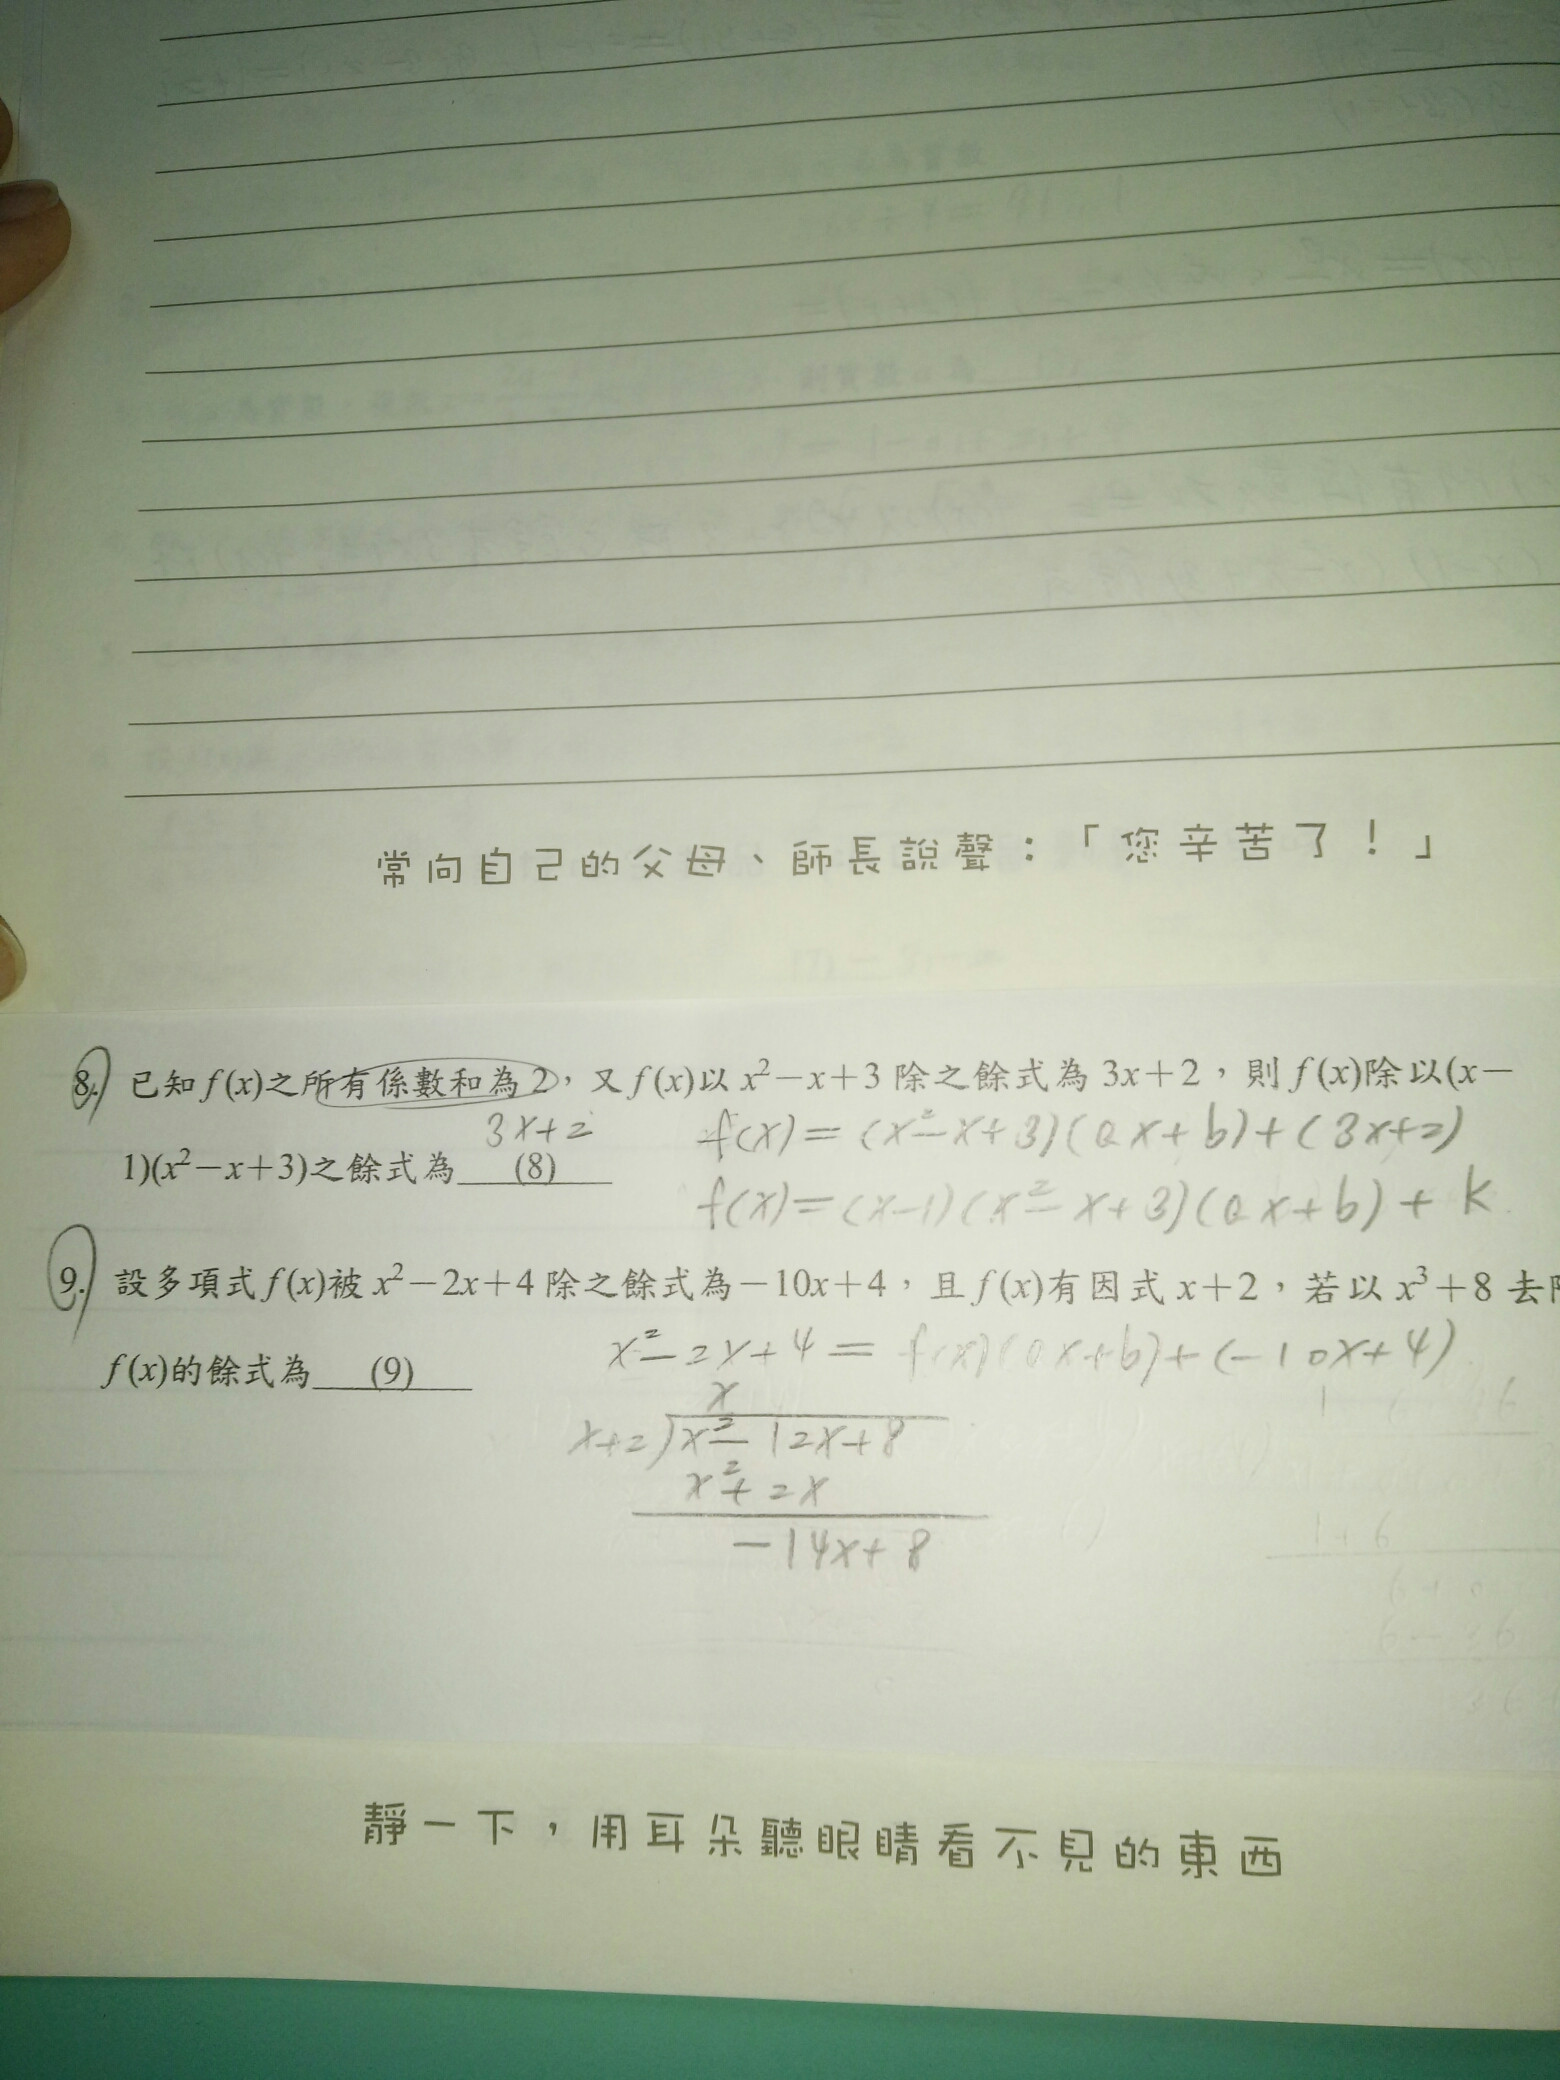 常向自己的父母、師長說聲：「您辛苦了！」
8. 已知 f(x)之所有係數和為 2，又 f(x)以 x²－x＋3 除之餘式為 3x＋2，則 f(x)除以(x－
3x+2
f(x)=(x²-x+3)(ax+b)+(3x+2)
1)(x²－x＋3)之餘式為 (8)
f(x)=(x-1)(x²-x+3)(ax+b)+k
9. 設多項式 f(x)被 x²－2x＋4 除之餘式為－10x＋4，且 f(x)有因式 x＋2，若以 x³＋8 去
x²-2x+4 = f(x)(ax+b)+(-10x+4)
f(x)的餘式為 (9)
x
x+2)x²-12x+8
x²+2x
-14x+8
靜一下，用耳朵聽眼睛看不見的東西